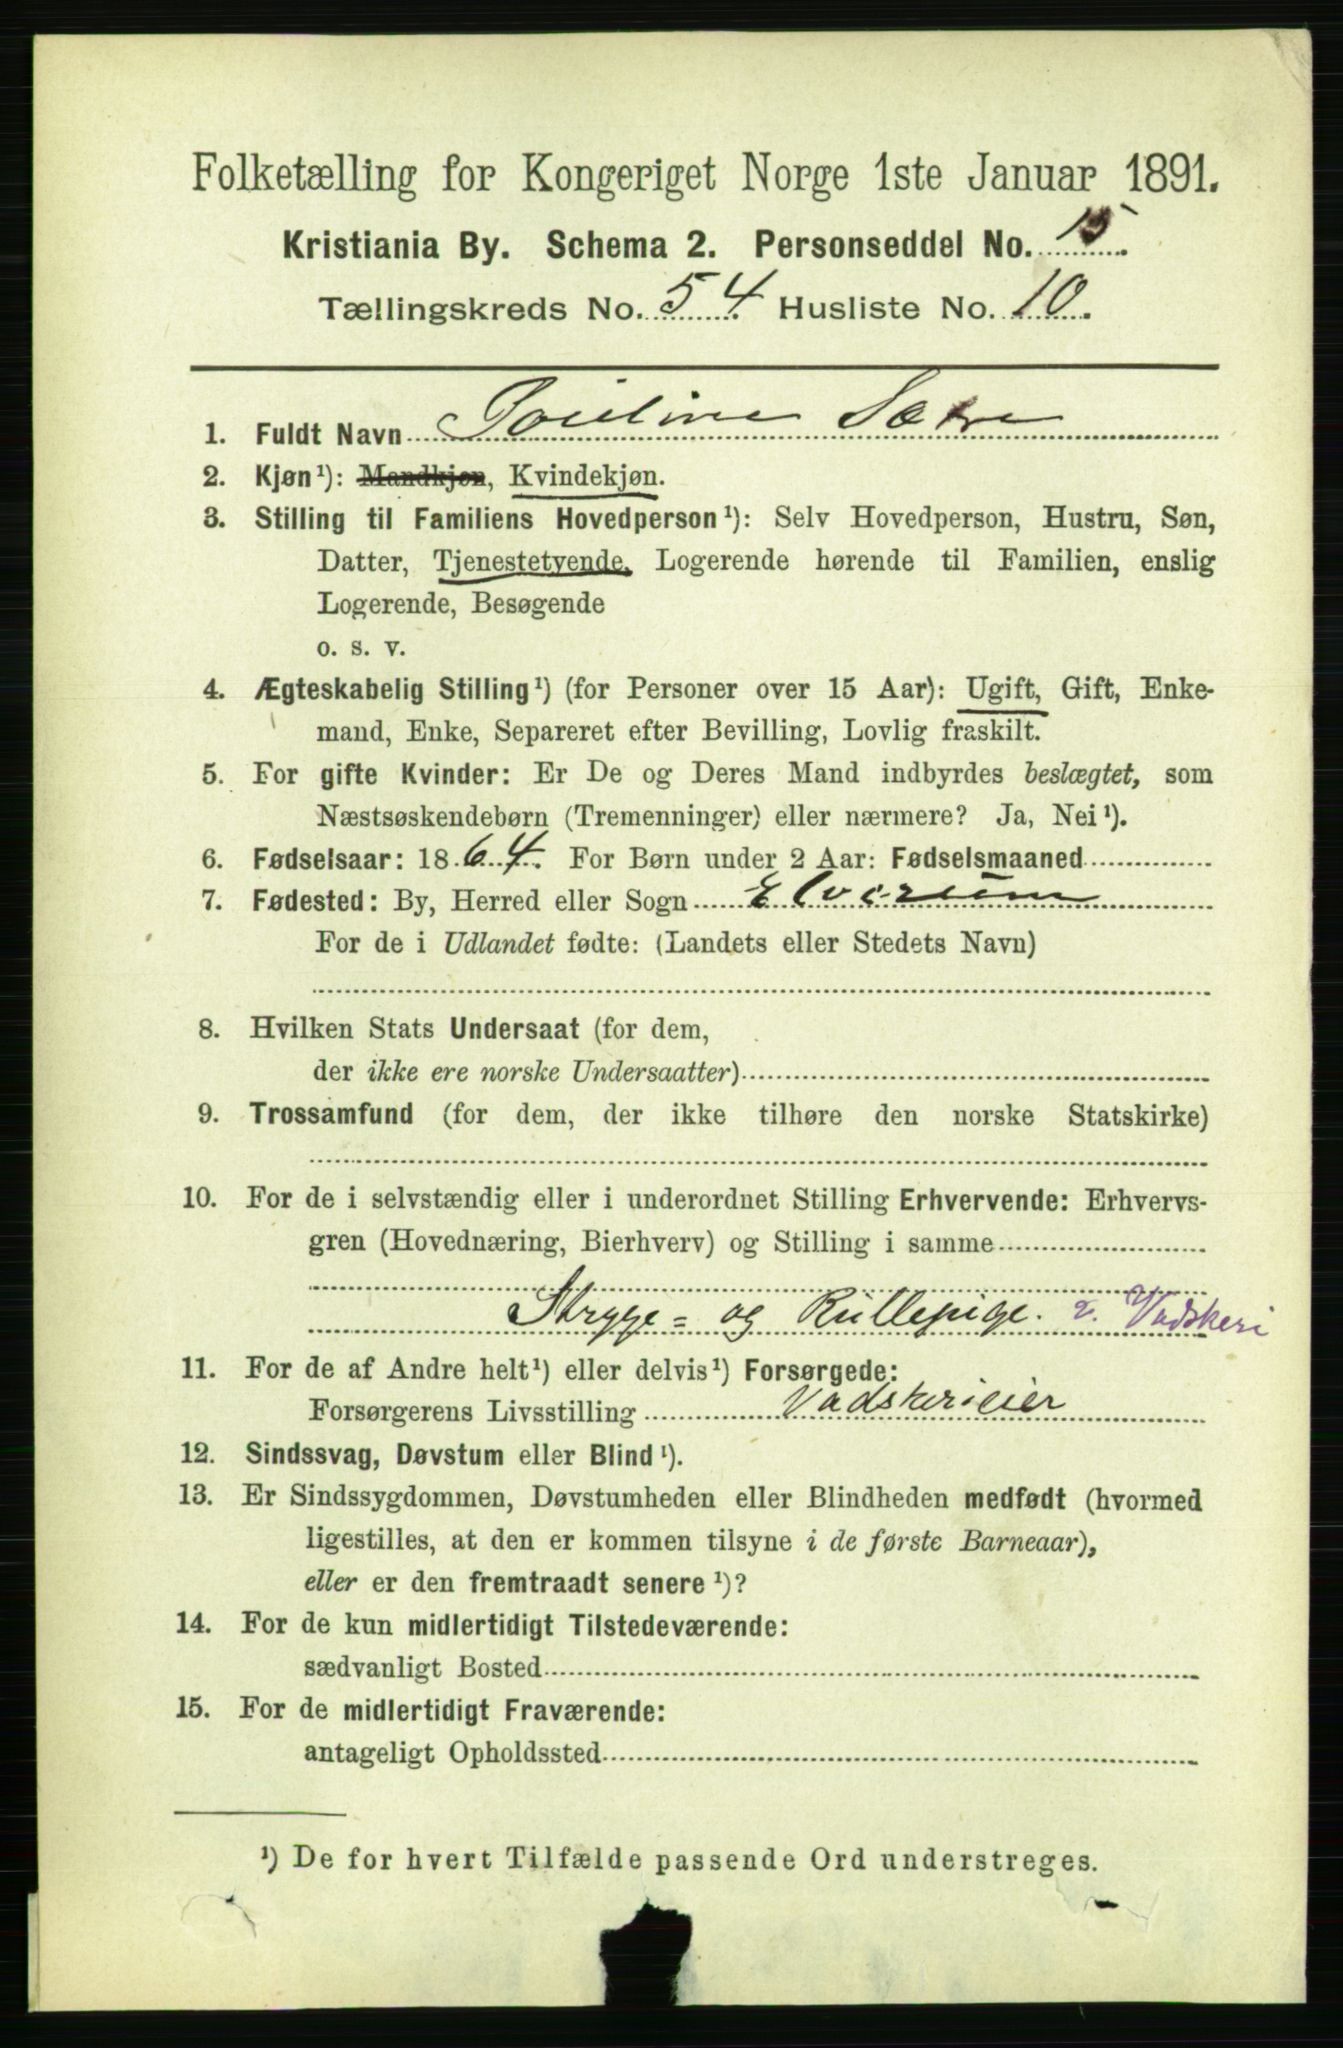 Folketælling for Kongeriget Norge 1ste Januar 1891.
Kristiania By. Schema 2. Personseddel No. 15.
Tællingskreds No. 54 Husliste No. 10.
1. Fuldt Navn Pouline Sætre
2. Kjøn¹): Mandkjøn, Kvindekjøn.
3. Stilling til Familiens Hovedperson¹): Selv Hovedperson, Hustru, Søn,
Datter, Tjenestetyende, Logerende hørende til Familien, enslig
Logerende, Besøgende
o. s. v.
4. Ægteskabelig Stilling¹) (for Personer over 15 Aar): Ugift, Gift, Enke-
mand, Enke, Separeret efter Bevilling, Lovlig fraskilt.
5. For gifte Kvinder: Er De og Deres Mand indbyrdes beslægtet, som
Næstsøskendebørn (Tremenninger) eller nærmere? Ja, Nei¹).
6. Fødselsaar: 1864. For Børn under 2 Aar: Fødselsmaaned
7. Fødested: By, Herred eller Sogn Elverum
For de i Udlandet fødte: (Landets eller Stedets Navn)
8. Hvilken Stats Undersaat (for dem,
der ikke ere norske Undersaatter)
9. Trossamfund (for dem, der ikke tilhøre den norske Statskirke)
10. For de i selvstændig eller i underordnet Stilling Erhvervende: Erhvervs-
gren (Hovednæring, Bierhverv) og Stilling i samme
Stryge- og Rullepige. v. Vadskeri
11. For de af Andre helt¹) eller delvis¹) Forsørgede:
Forsørgerens Livsstilling Vadskerieier
12. Sindssvag, Døvstum eller Blind¹).
13. Er Sindssygdommen, Døvstumheden eller Blindheden medfødt (hvormed
ligestilles, at den er kommen tilsyne i de første Barneaar),
eller er den fremtraadt senere¹)?
14. For de kun midlertidigt Tilstedeværende:
sædvanligt Bosted
15. For de midlertidigt Fraværende:
antageligt Opholdssted
¹) De for hvert Tilfælde passende Ord understreges.